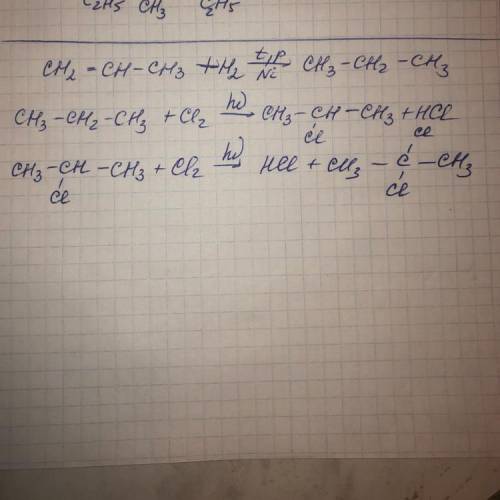 C2H5 CH3 C2H5
CH2 = CH - CH3 + H2 t,p→Ni CH3 - CH2 - CH3
CH3 - CH2 - CH3 + Cl2 hν→ CH3 - CH - CH3 + HCl
Cl Cl
CH3 - CH - CH3 + Cl2 hν→ HCl + CH3 - C - CH3
Cl Cl